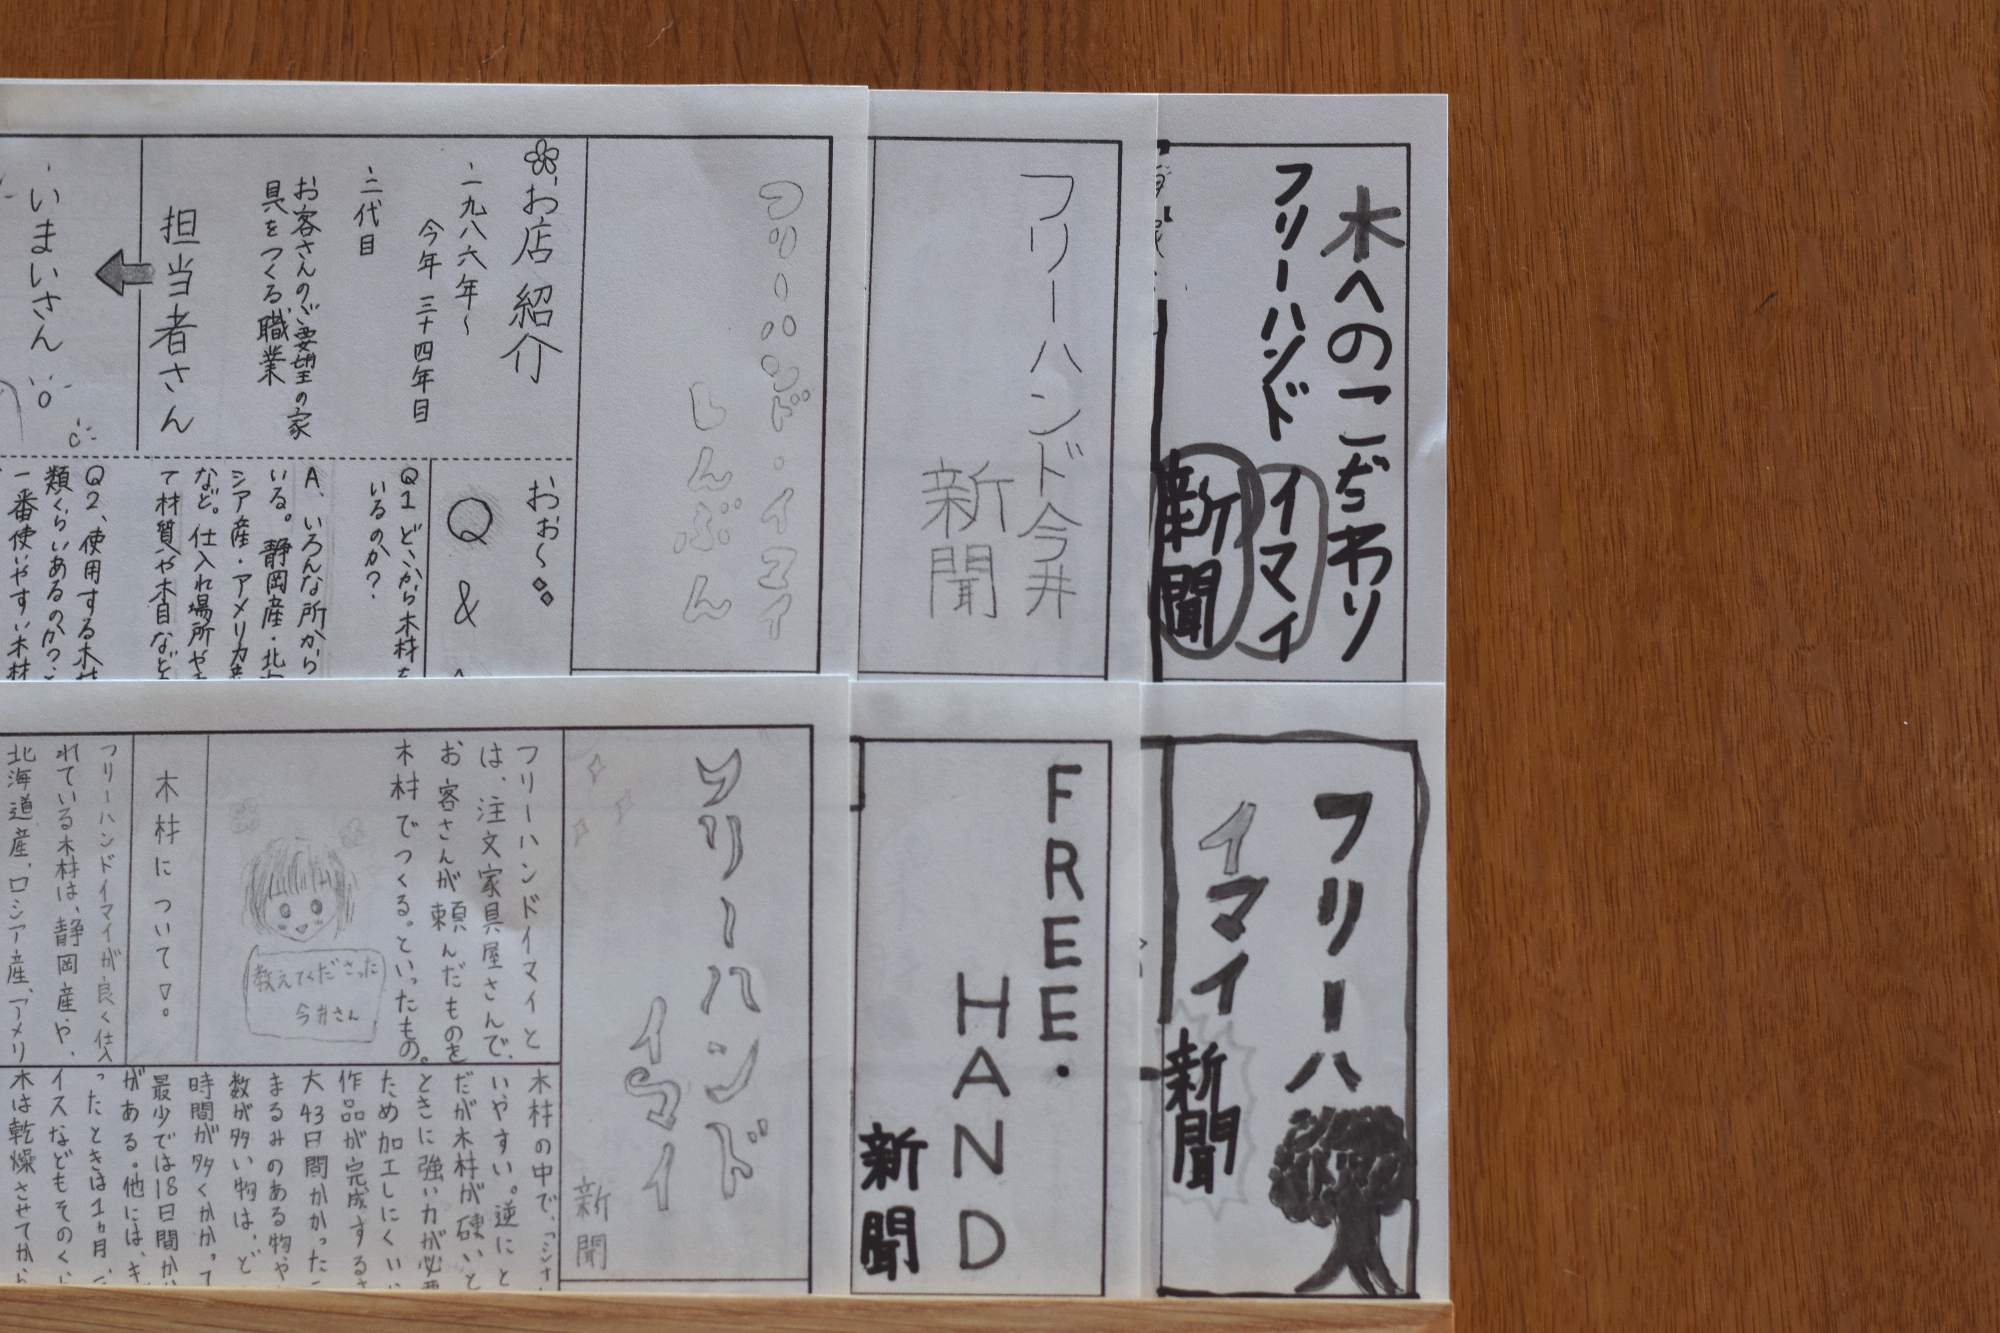 木へのこだわり
フリーハンド
イマイ
新聞
フリーハンド今井
新聞
フリーハンド・イマイ
しんぶん
お店紹介
一九八六年〜
今年三十四年目
二代目
お客さんのご要望の家
具をつくる職業
担当者さん
いまいさん
おぉ〜
Q &
Q1 どこから木材を
いるのか?
A、いろんな所から
いる。静岡産・北
シア産・アメリカ産
など。仕入れ場所や
て材質や木目など
Q2、使用する木材
類くらいあるのか?
一番使いやすい木材
フリーハ
イマイ
新聞
FREE・
HAND
新聞
フリーハンド
イマイ
新聞
フリーハンドイマイと
は、注文家具屋さんで、
お客さんが頼んだものを
木材でつくる。といったもの。
教えてくださった
今井さん
木材について▽。
フリーハンドイマイが良く仕入
れている木材は、静岡産や、
北海道産、ロシア産、アメリ
木材の中で、
いやすい。逆にと
だが木材が硬いと
ときに強い力が必要
ため加工しにくい
作品が完成する
大43日間かかった
まるみのある物や
数が多い物は、ど
時間が多くかかって
最少では18日間か
がある。他には、キ
ったときは1ヵ月
イスなどもそのくら
木は乾燥させてから